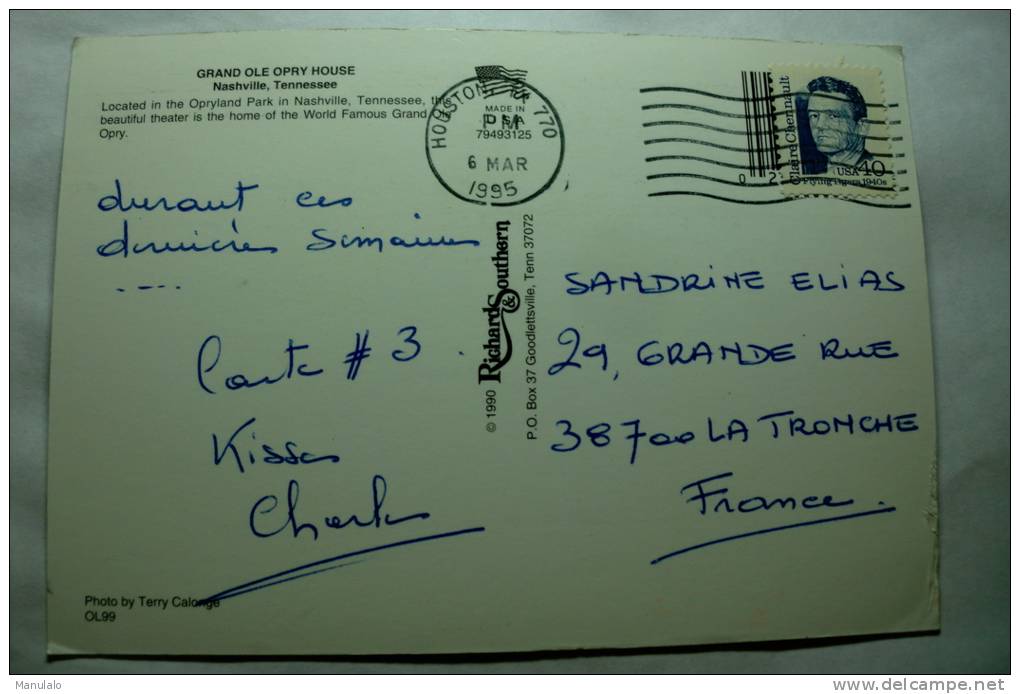 GRAND OLE OPRY HOUSE
Nashville, Tennessee
Located in the Opryland Park in Nashville, Tennessee, this
beautiful theater is the home of the World Famous Grand Ole
Opry.
durant ces
dernières semaines
....
Carte # 3.
Kisses
Charles
Photo by Terry Calonge
OL99
HOUSTON, TX 770
PM
6 MAR
1995
MADE IN
USA
79493125
© 1990 Richard & Southern
P.O. Box 37 Goodlettsville, Tenn 37072
Claire Chennault
USA 40
Flying Tigers 1940s
0 2
SANDRINE ELIAS
29, GRANDE RUE
38700 LA TRONCHE
France.
Manulalo
www.delcampe.net